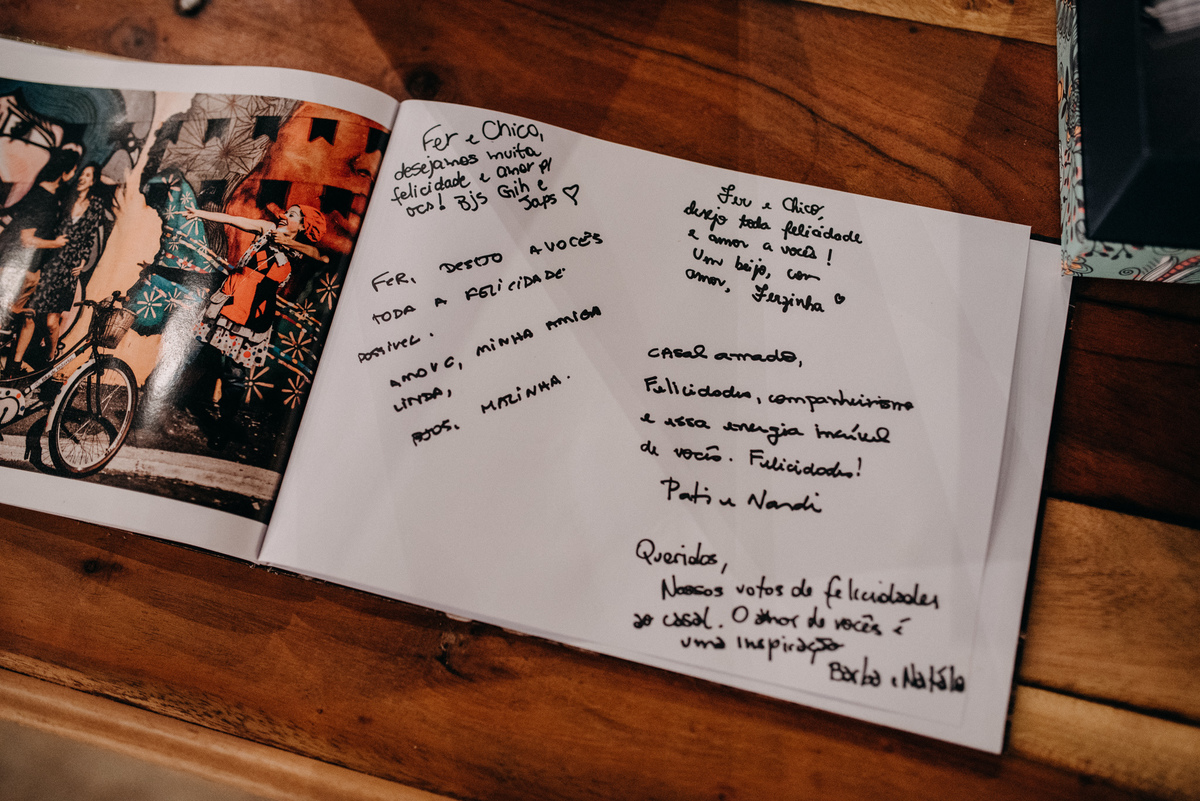 Fer e Chico,
desejamos muita
felicidade e amor p/
vcs! Bjs Gih e
Japs ♡
FER, DESEJO A VOCÊS
TODA A FELICIDADE
POSSIVEL.
AMO VC, MINHA AMIGA
LINDA,
BJOS, MALINHA.
Fer e Chico,
desejo toda felicidade
e amor a vocês!
Um beijo, com
amor, Ferzinha ♡
casal amado,
Felicidades, companheirismo
e essa energia incrível
de vocês. Felicidades!
Pati e Nandi
Queridos,
Nossos votos de felicidades
ao casal. O amor de vocês é
uma inspiração
Barba e Natália